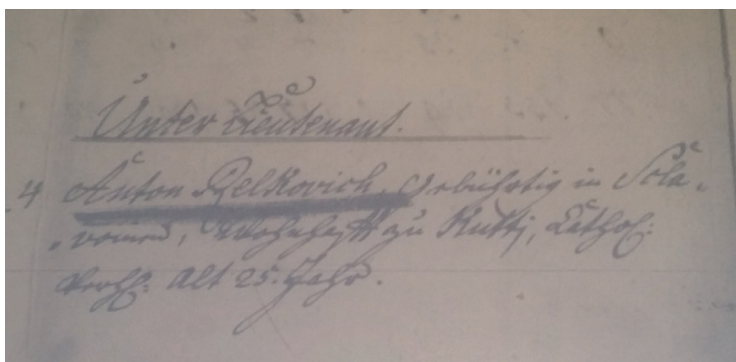 Unter Lieutenant.
4 Anton Relkovich, Gebührtig in Scla-
vonien, Wohnhafft zu Kuttj, Cathol:
Verh: Alt 25. Jahr.